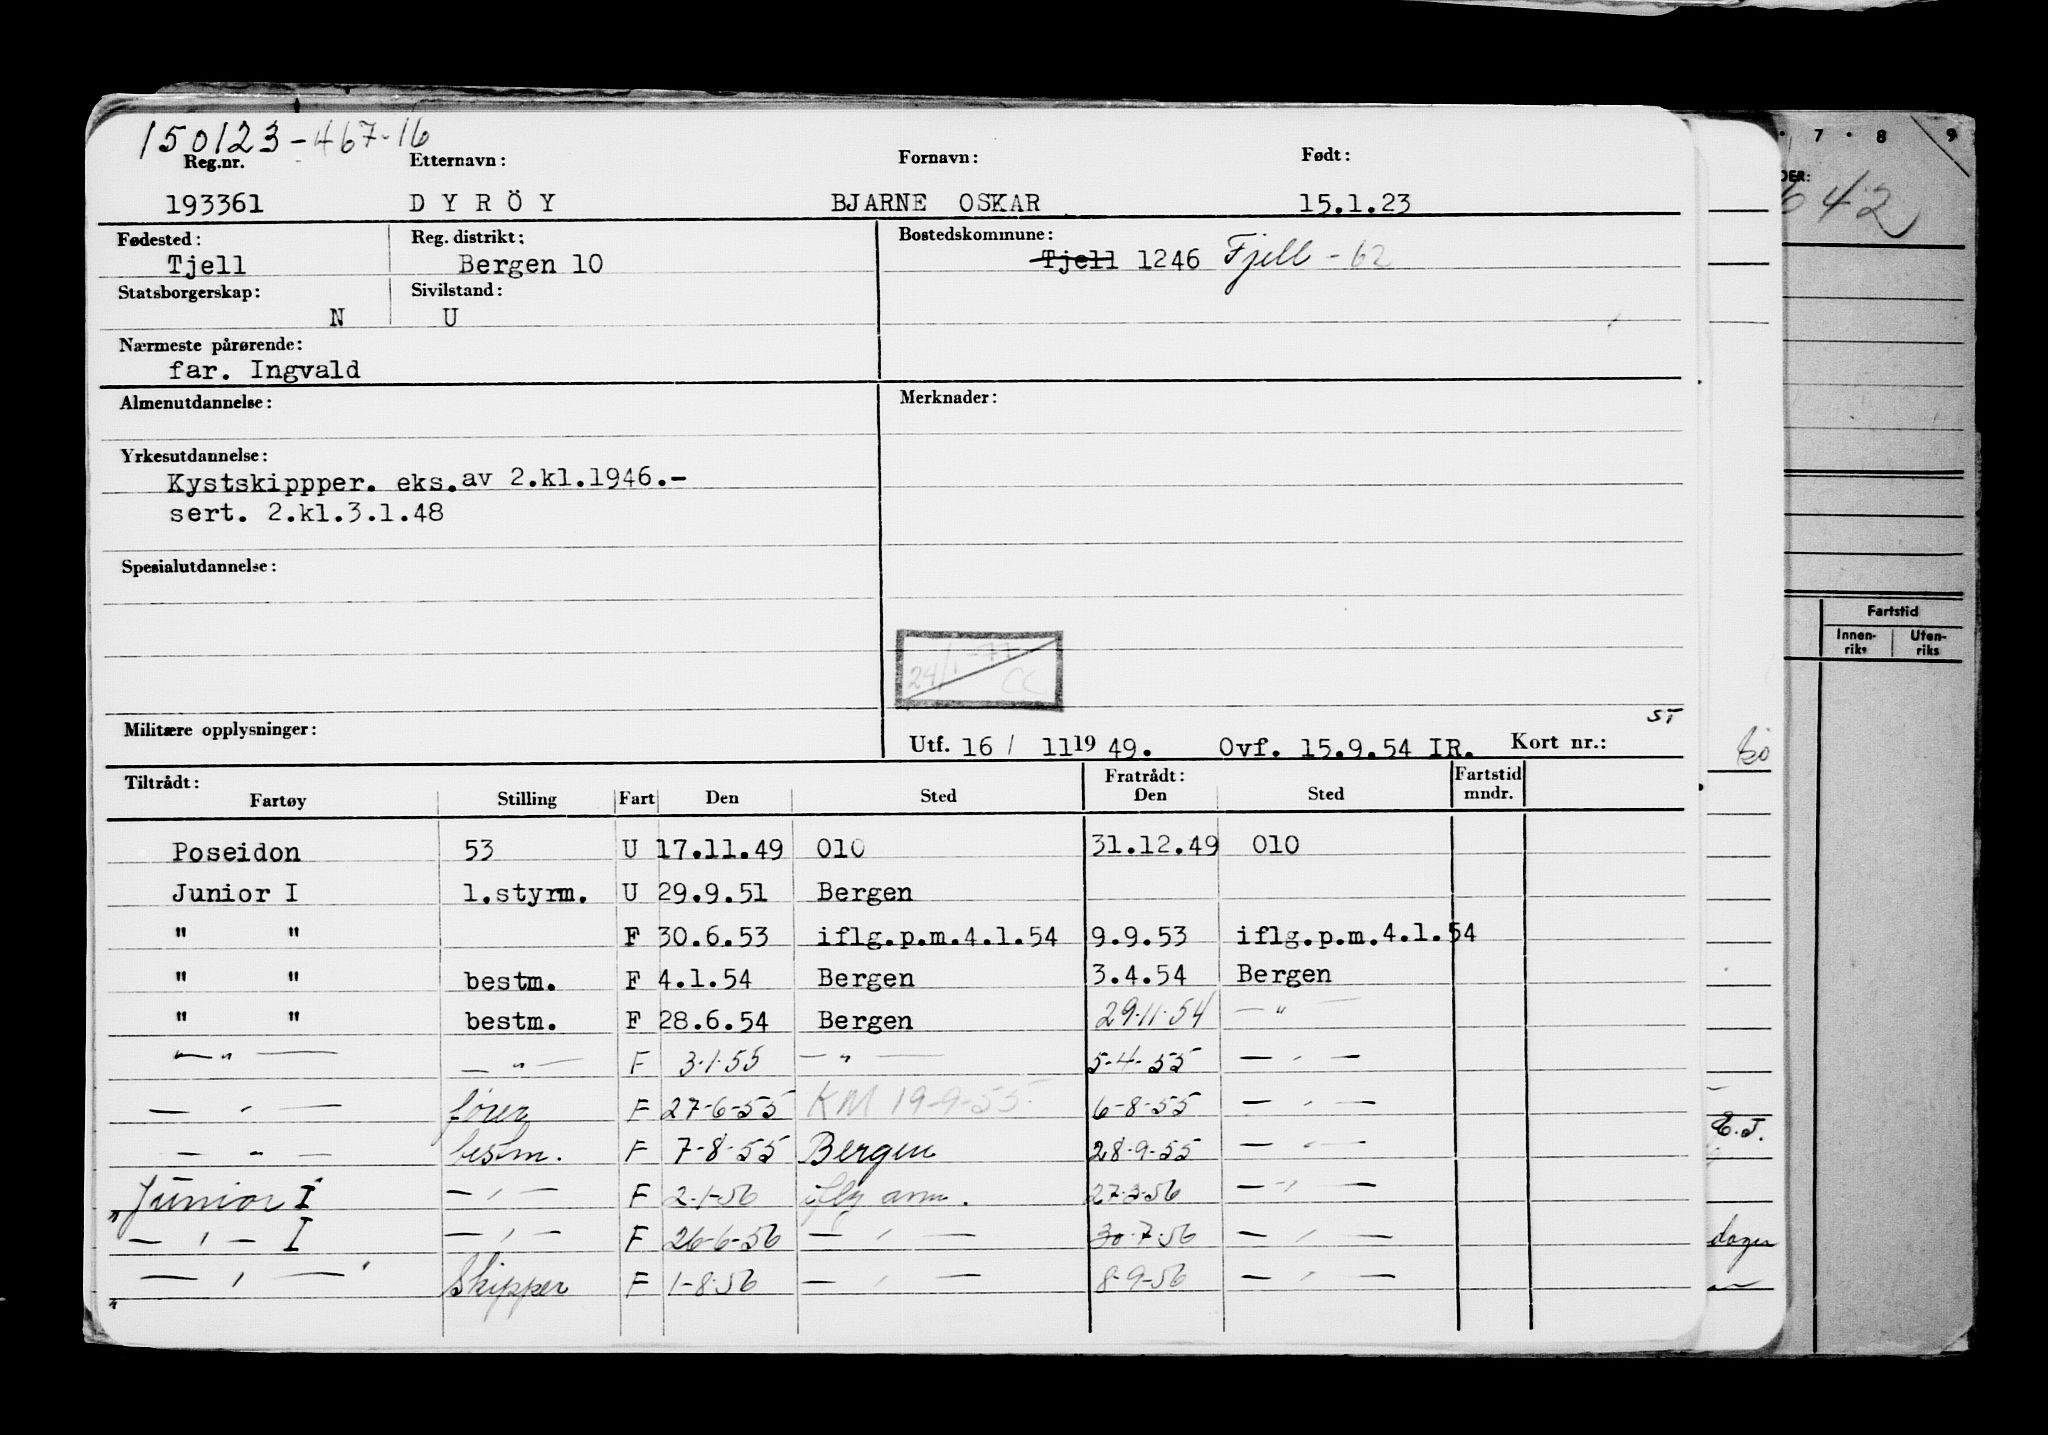 150123-467-16
Reg.nr. Etternavn: Fornavn: Født:
193361 DYRÖY BJARNE OSKAR 15.1.23
Fødested: Reg. distrikt: Bostedskommune:
Tjell Bergen 10 Tjell 1246 Fjell - 62
Statsborgerskap: Sivilstand:
N U
Nærmeste pårørende:
far. Ingvald
Almenutdannelse: Merknader:
Yrkesutdannelse:
Kystskippper. eks.av 2.kl.1946.-
sert. 2.kl.3.1.48
Spesialutdannelse:
24/1-77 CC
ST
Militære opplysninger: Utf. 16/ 11 19 49. Ovf. 15.9.54 IR. Kort nr.:
Tiltrådt: Fratrådt: Fartstid
Fartøy Stilling Fart Den Sted Den Sted mndr.
Poseidon 53 U 17.11.49 010 31.12.49 010
Junior I 1.styrm. U 29.9.51 Bergen
" " F 30.6.53 iflg.p.m.4.1.54 9.9.53 iflg.p.m.4.1.54
" " bestm. F 4.1.54 Bergen 3.4.54 Bergen
" " bestm. F 28.6.54 Bergen 29.11.54 — " —
— " — — " — F 3.1.55 — " — 5-4-55 — " —
— " — fører F 27-6-55 KM 19-9-55. 6-8-55 — " —
— " — bestm. F 7-8-55 Bergen 28.9.55 — " —
" Junior I — " — F 2-1-56 iflg anm. 27.3.56 — " —
— " — I — " — F 26-6-56 — " — 30.7.56 — " —
" — " — Skipper F 1-8.56 — " — 8-9-56 — " —
7 · 8 9
DER:
642
Fartstid
Innen-riks Uten-riks
E.J.
dager